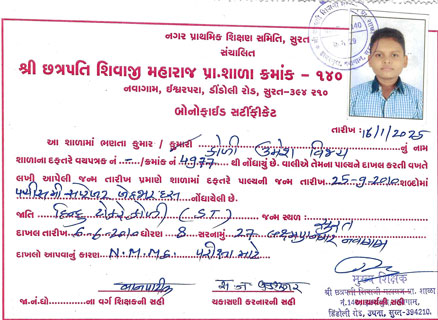 નગર પ્રાથમિક શિક્ષણ સમિતિ, સુરત
સંચાલિત
શ્રી છત્રપતિ શિવાજી મહારાજ પ્રા.શાળા ક્રમાંક - ૧૪૦
નવાગામ, ઈશ્વરપરા, ડીંડોલી રોડ, સુરત-૩૯૪ ૨૧૦
બોનોફાઈડ સર્ટીફીકેટ
તારીખ : 16/1/2025
આ શાળામાં ભણતા કુમાર / કુમારી કોળી ઉમેશ વિજય નું નામ
શાળાના દફતરે વયપત્રક નં. - / ક્રમાંક નં 4977 થી નોંધાયું છે. વાલીએ તેમના પાલ્યને દાખલ કરતી વખતે
લખી આપેલી જન્મ તારીખ પ્રમાણે શાળાના દફતરે પાલ્યની જન્મ તારીખ 25-9-2010 શબ્દોમાં
પચીસમી સપ્ટેમ્બર બેહજાર દસ નોંધાયેલી છે.
જાતિ હિન્દુ ટોકરે કોળી (S.T) જન્મ સ્થળ : સુરત
દાખલ તારીખ : 6-6-2010 ધોરણ 8 સરનામું 27 નવાગામ
દાખલો આપવાનું કારણ N.M.M.S. પરીક્ષા માટે
જા.નં.છો. ના વર્ગ શિક્ષકની સહી ચકાસણી કરનારની સહી આચાર્યની સહી
મુખ્ય શિક્ષક
શ્રી છત્રપતિ શિવાજી મહારાજ પ્રા. શાળા
નં.140 નવાગામ,
ડિંડોલી રોડ, ઉધના, સુરત-394210.